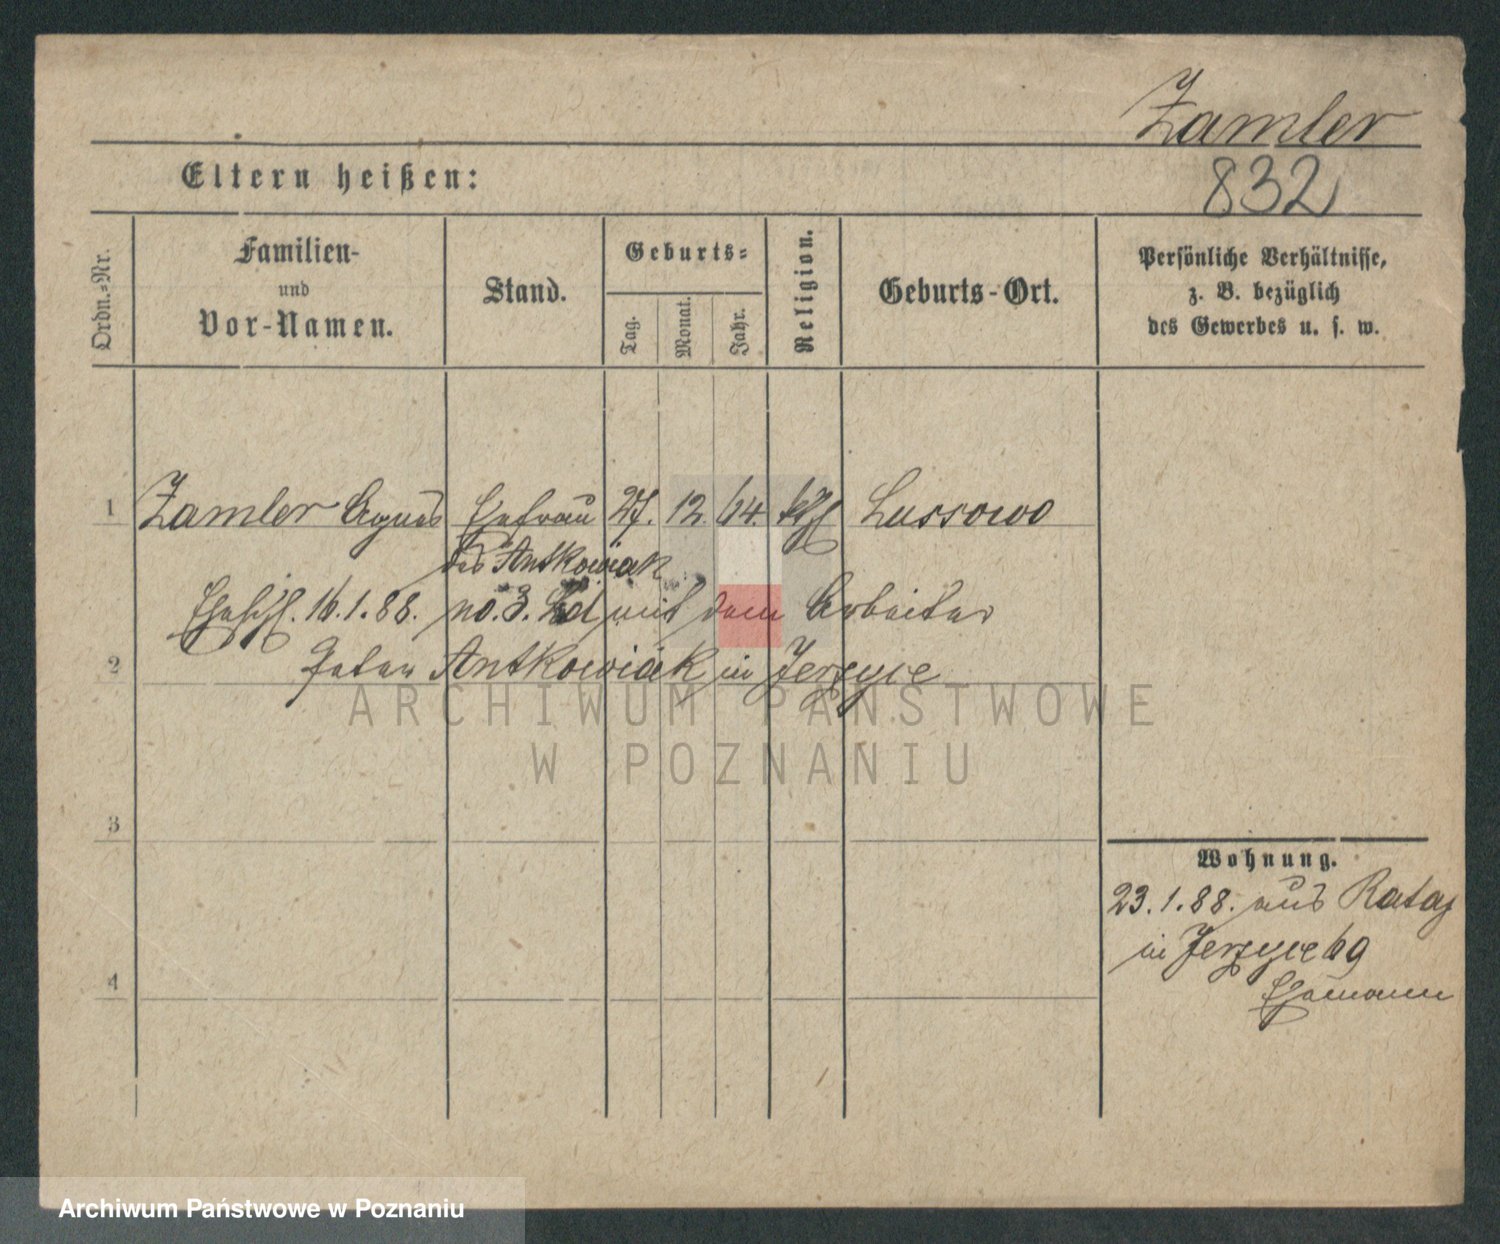 Zamler
832
Eltern heißen:
Ordn.-Nr.
Familien-
und
Vor-Namen.
Stand.
Geburts-
Tag.
Monat.
Jahr.
Religion.
Geburts-Ort.
Persönliche Verhältnisse,
z. B. bezüglich
des Gewerbes u. s. w.
1 Zamler Agnes Ehefrau 27. 12. 64. kth Lussowo
des Antkowiak
Ehesch. 16.1.88. no. 3. mit dem Arbeiter
2 Peter Antkowiak in Jerzyce
ARCHIWUM PAŃSTWOWE
W POZNANIU
3
Wohnung.
23.1.88. aus Rataj
in Jerzyce 69
Ehemann
4
Archiwum Państwowe w Poznaniu